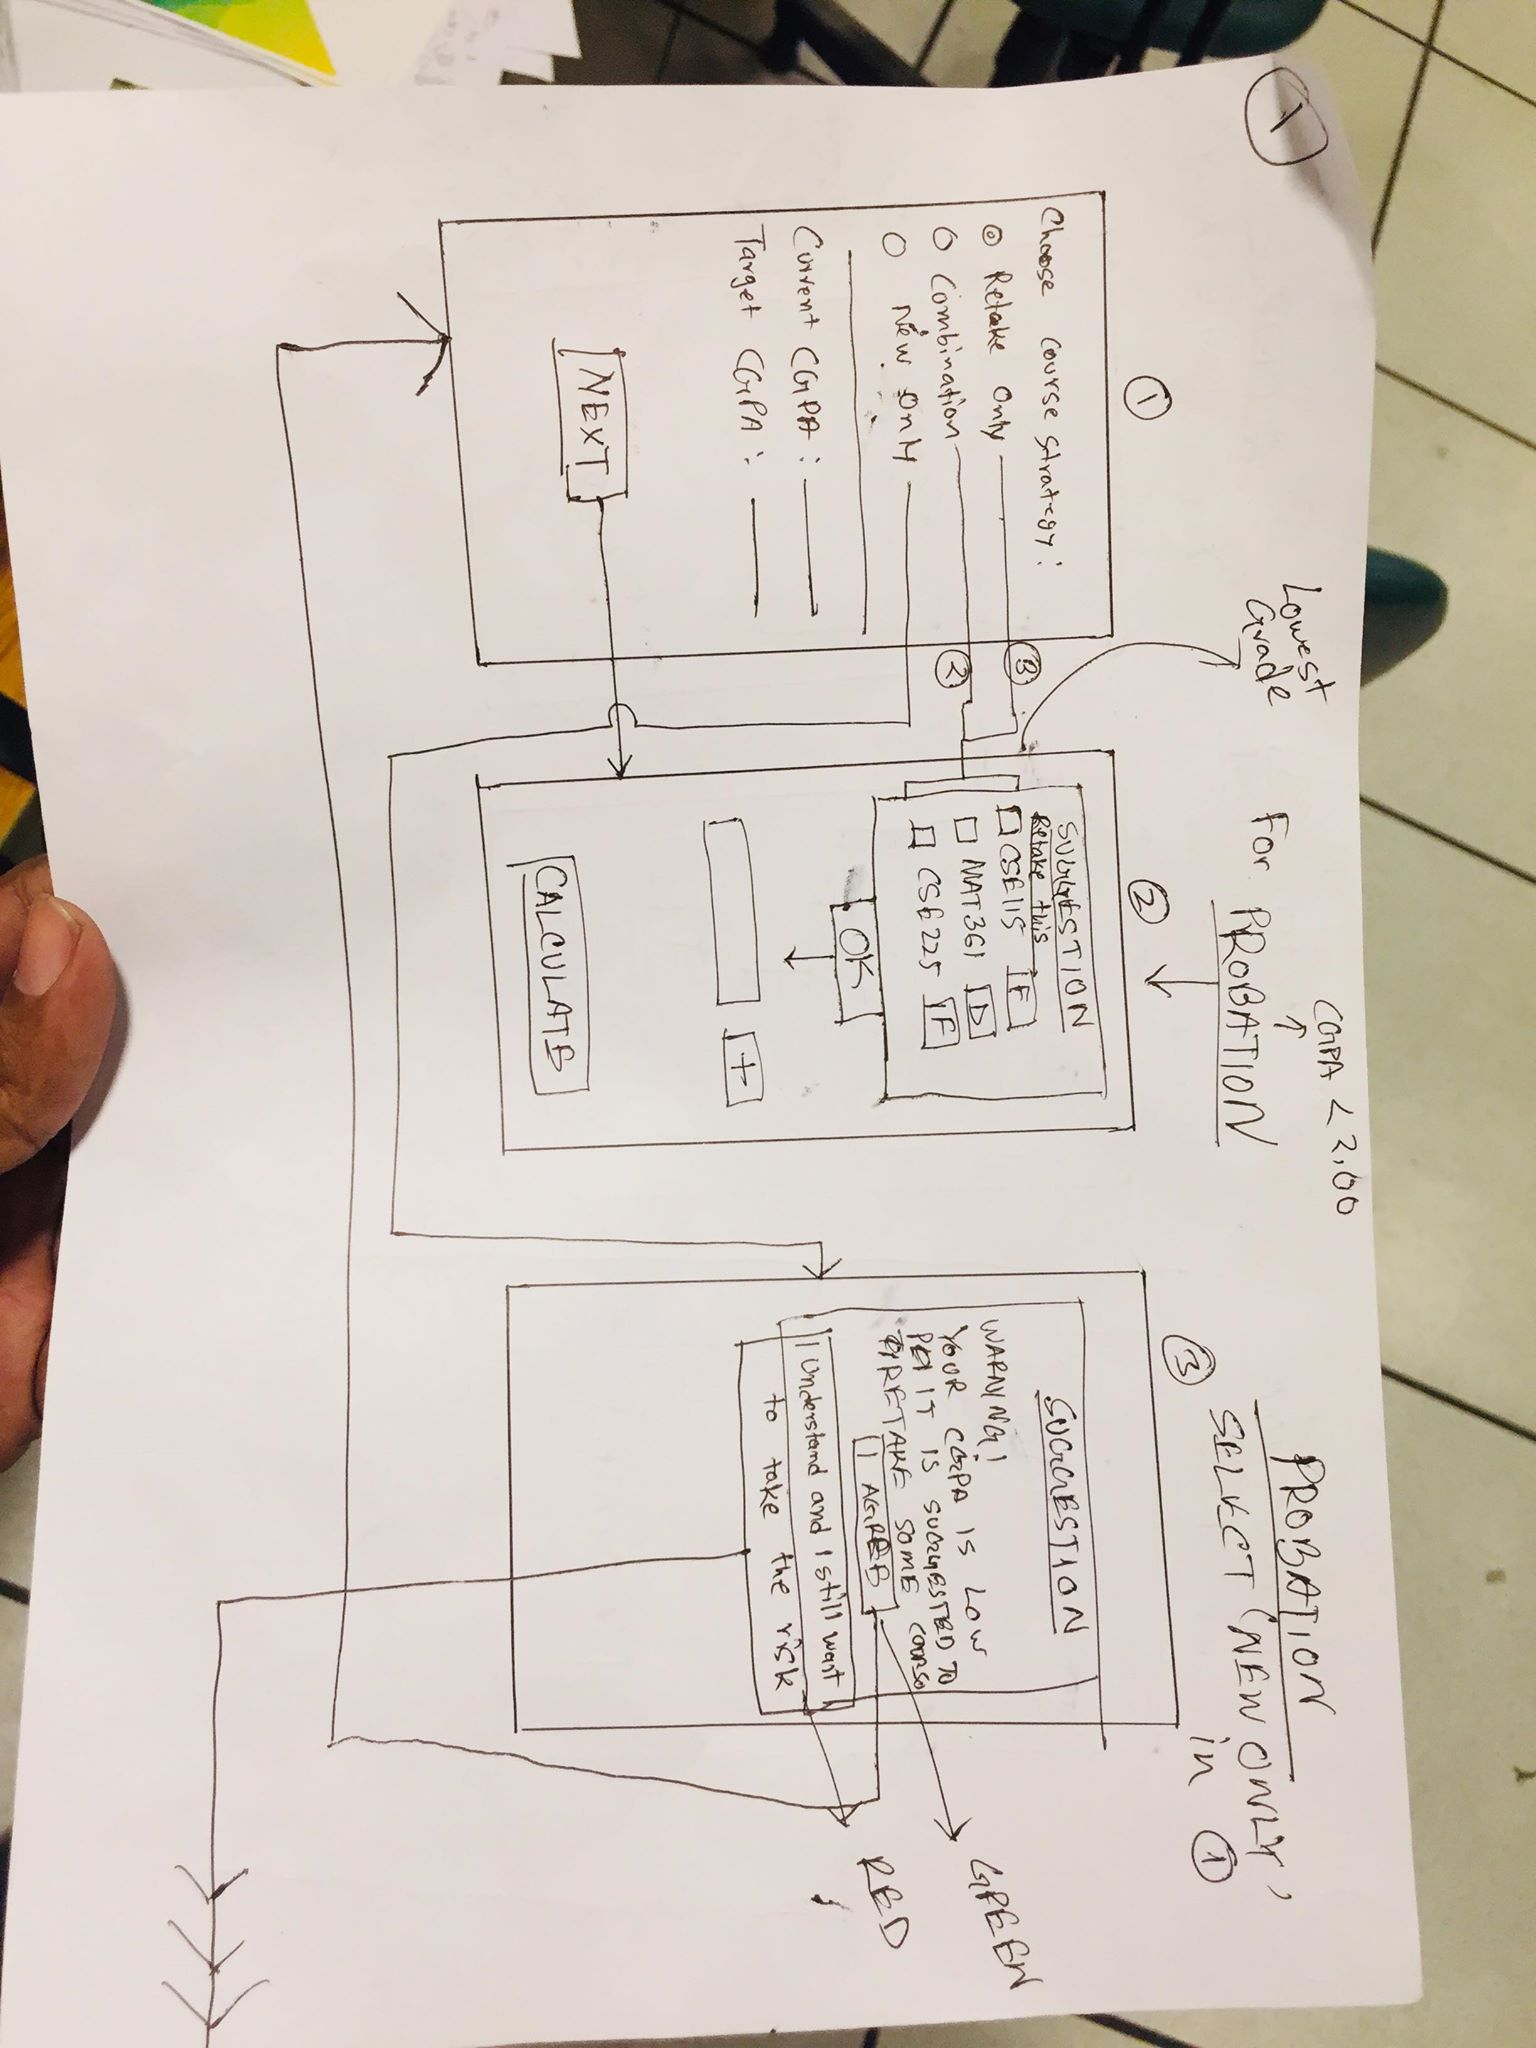 1
Lowest
Grade
CGPA < 2.00
For PROBATION
PROBATION
SELECT 'NEW ONLY'
in 1
1
Choose course strategy:
Retake Only
3
Combination
2
New Only
Current CGPA:
Target CGPA:
NEXT
2
SUGGESTION
Retake this
CSE115 F
MAT361 D
CSE225 F
OK
+
CALCULATE
3
SUGGESTION
WARNING!
YOUR CGPA IS LOW
IT IS SUGGESTED TO
RETAKE SOME COURSE
I AGREE
I Understand and I still want
to take the risk
GREEN
RED